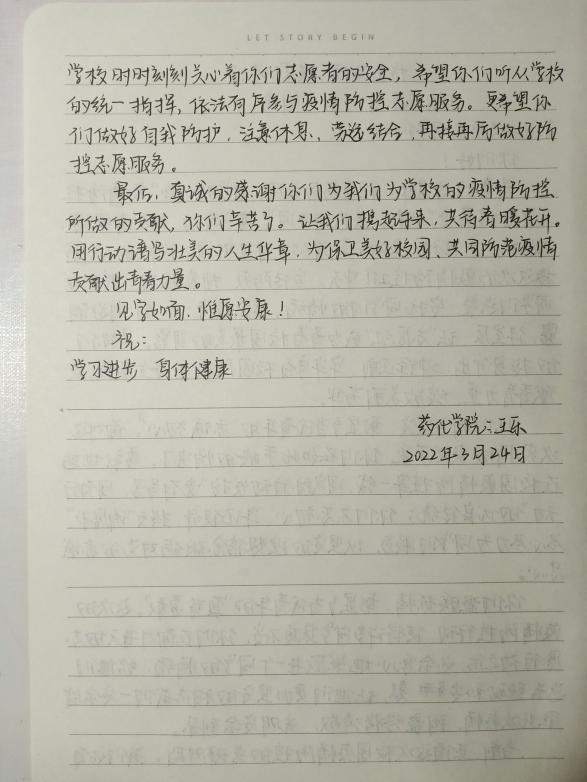 LET STORY BEGIN
学校时时刻刻关心着你们志愿者的安全，希望你们听从学校
的统一指挥，依法有序参与疫情防控志愿服务。更希望你
们做好自我防护，注意休息、劳逸结合，再接再厉做好防
控志愿服务。
最后，真诚的感谢你们为我们为学校的疫情防控
所做的贡献，你们辛苦了。让我们携起手来，共待春暖花开。
用行动谱写壮美的人生华章，为保卫美好校园、共同防范疫情
贡献出青春力量。
见字如面，惟愿安康！
祝：
学习进步 身体健康
药化学院：王乐
2022年3月24日